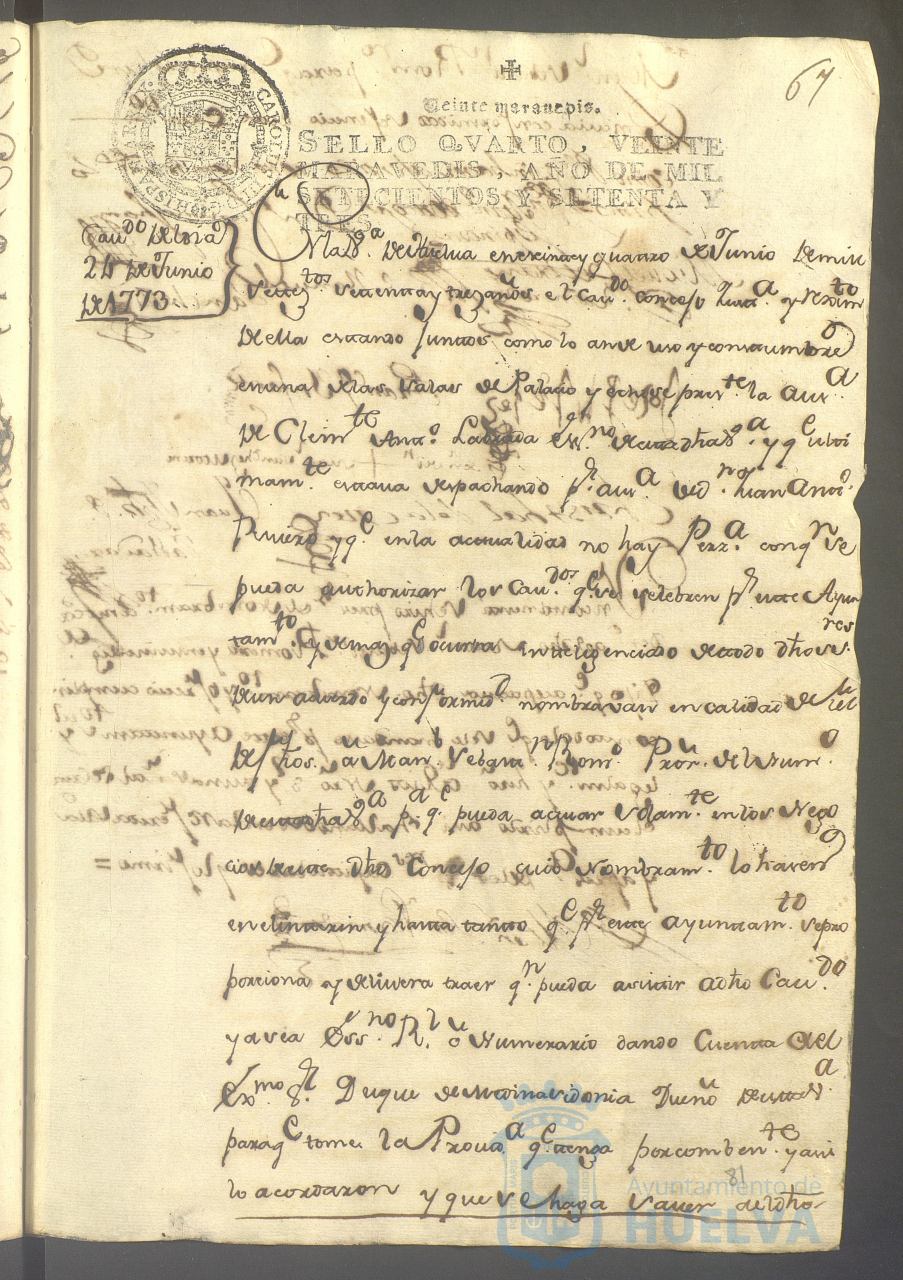 67
Veinte maravedis.
SELLO QVARTO, VEINTE
MARAVEDIS, AÑO DE MIL
SETECIENTOS Y SETENTA Y
TRES.
Cau.do De
24 De Junio
De 1773
De Huelua en veinte y quatro de Junio De mill
settez.tos settenta y tres años el Cau.do concejo Just.a y Rexim.to
De ella estando Juntos como lo an de uso y constumbre
en una de las salas de Palacio y echose pres.te la aus.a
De Clem.te Ant.o Labrada Es.no de esta dha V.a y q.e ulti
mam.te estava despachando p.r aus.a de D.n Juan Ant.o
Riviero y q.e en la actualidad no hay Perz.a con q.n se
pueda authorizar los Cau.dos q.e se zelebren p.r este Ayun
tam.to y demas q.e ocurra intelig enciado de todo dhos s.res
De un acuerdo y conformid.d nombravan en calidad de fiel
De fhos a Man.l Rom.o Pror. del Num.o
De esta dha V.a p.a q.e pueda actuar solam.te en los Nego
cios de este dho Concejo cuio Nombram.to lo hacen
en el interin y hasta tanto q.e p.r este ayuntam.to se pro
porciona y delivera traer q.n pueda asistir a dho Cau.do
ya sea Ess.no R.l o Numerario dando Cuenta al
Ex.mo S.r Duque de Medinasidonia Dueño de esta V.a
para q.e tome la Prouid.a q.e tenga por comben.te y asi
lo acordaron y que se haga saver al dho
81
Ayuntamiento de
HUELVA